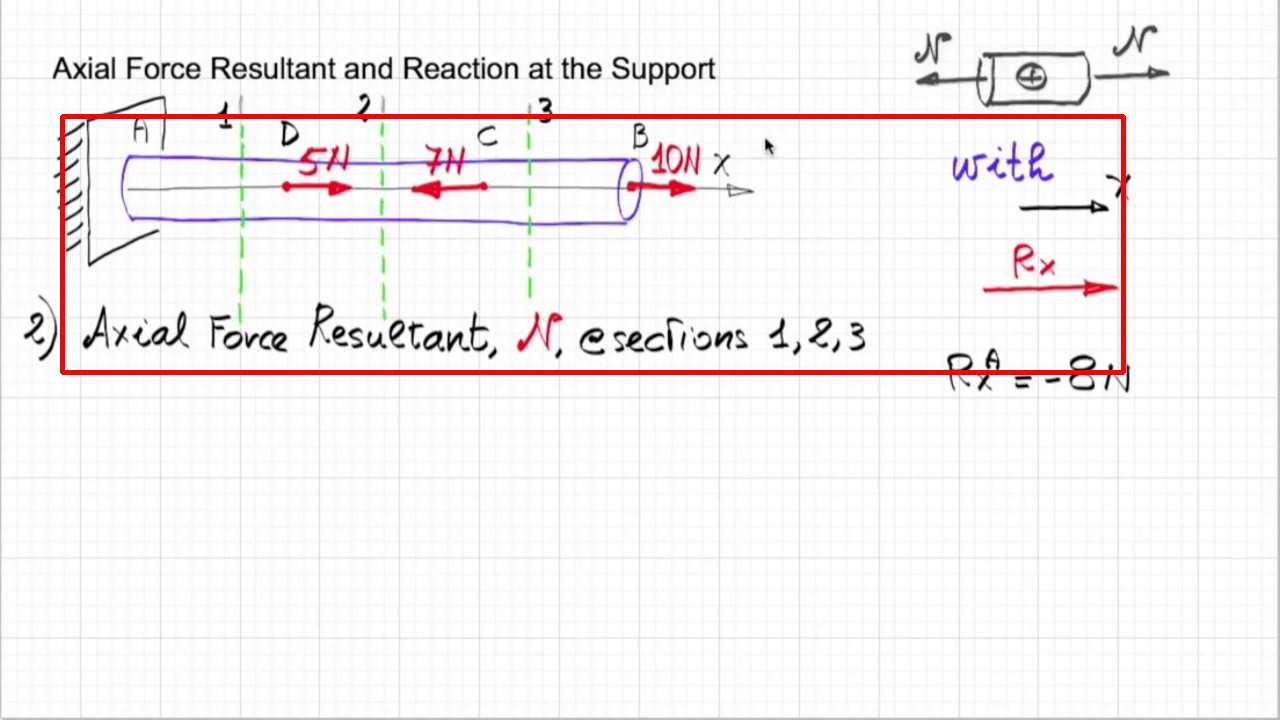 Axial Force Resultant and Reaction at the Support
N N
1 2 3
A D C B
5N 7N 10N x
with
x
Rx
2) Axial Force Resultant, N, @ sections 1, 2, 3
RxA = -8N